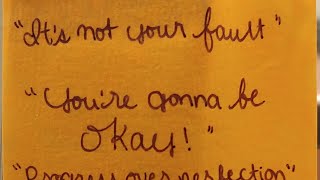 "It's not your fault"
"You're gonna be
okay!"
"Progress over perfection"